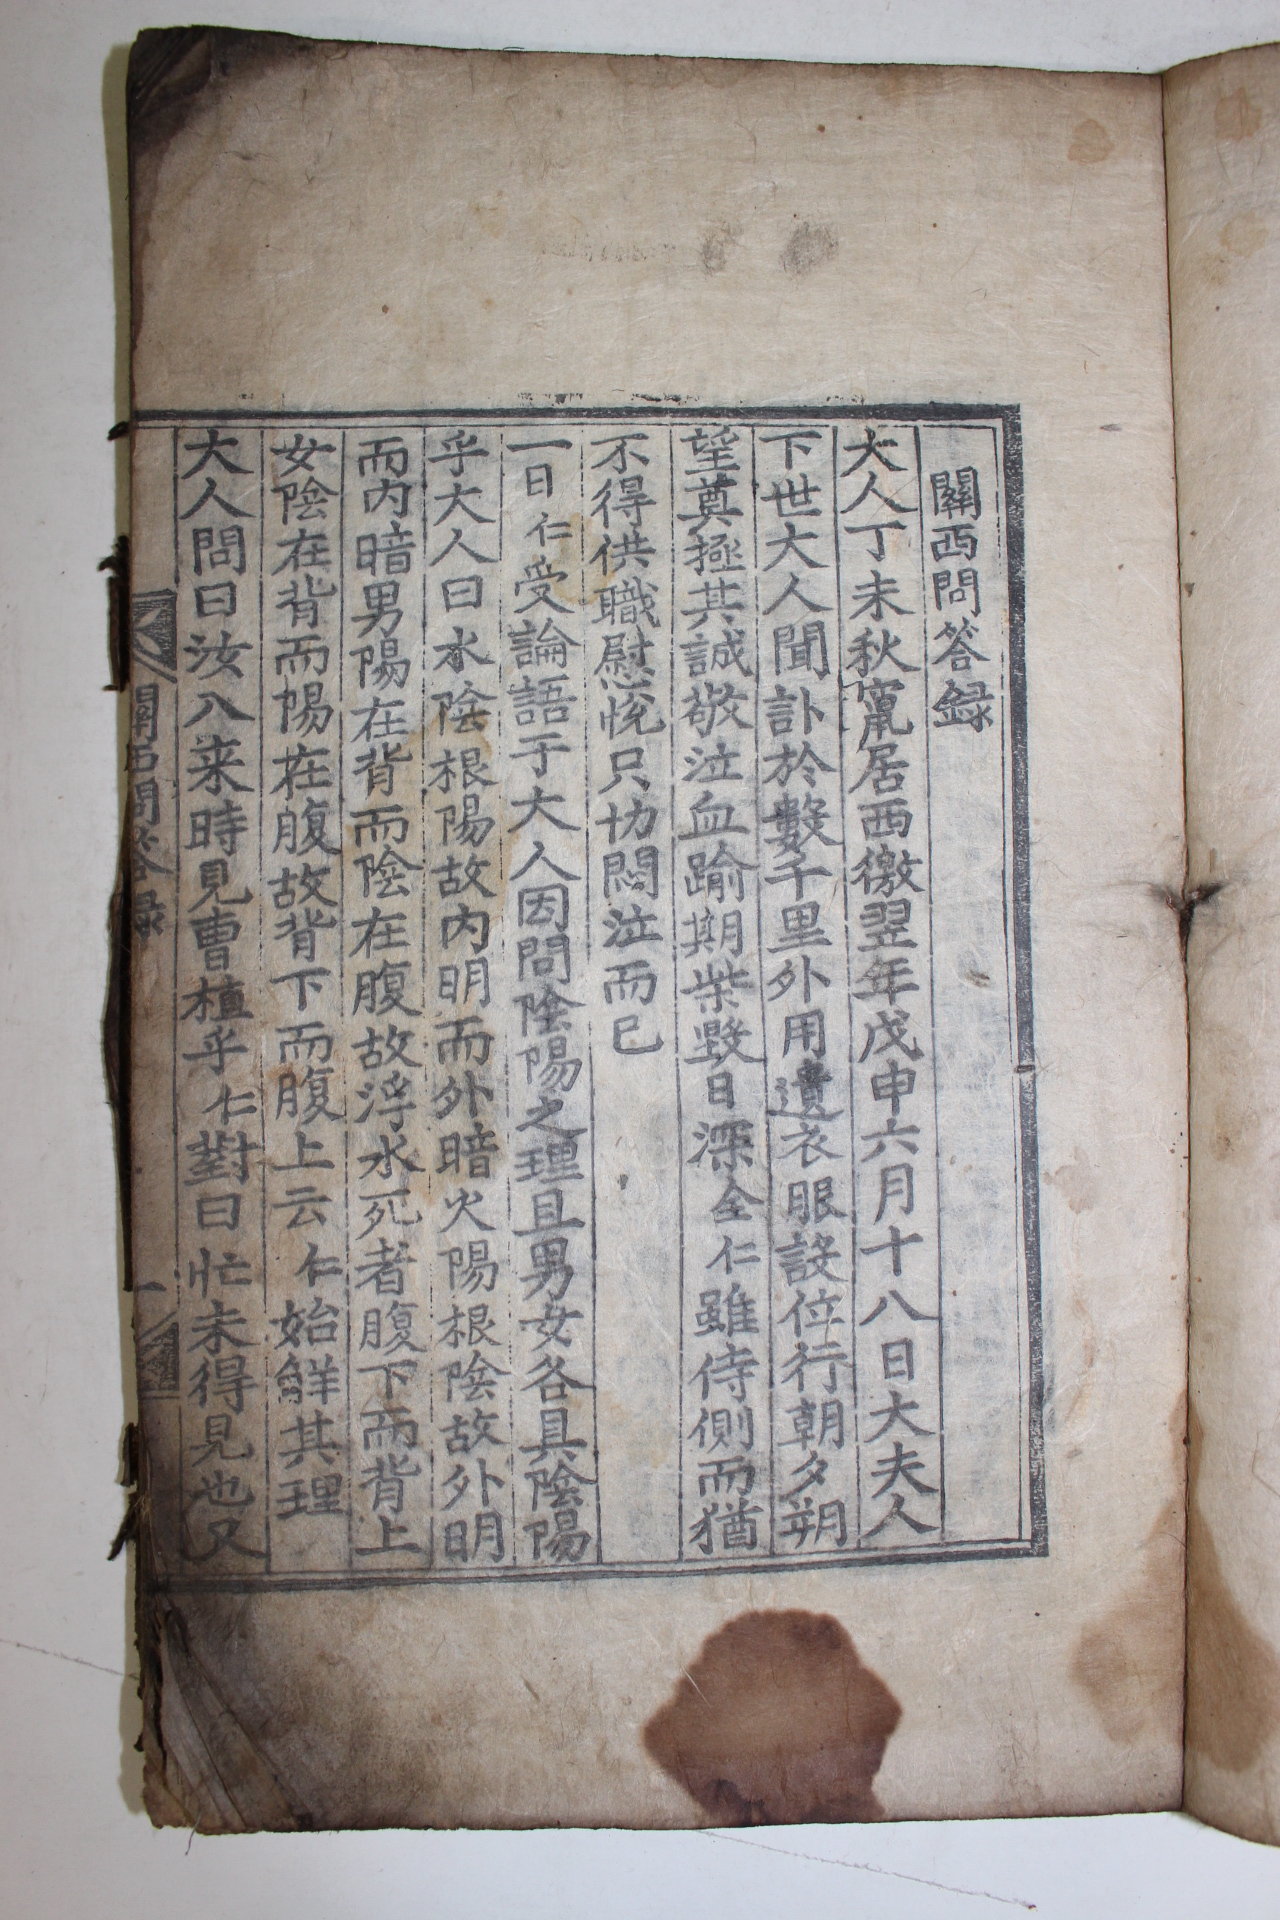 關西問答録
大人丁未秋竄居西徼翌年戊申六月十八日大夫人
下世大人聞訃於數千里外用遺衣服設位行朝夕朔
望奠極其誠敬泣血踰期柴毀日深全仁雖侍側而猶
不得供職慰悅只切悶泣而已
一日仁受論語于大人因問陰陽之理且男女各具陰陽
乎大人曰水陰根陽故内明而外暗火陽根陰故外明
而内暗男陽在背而陰在腹故浮水死者腹下而背上
女陰在背而陽在腹故背下而腹上云仁始鮮其理
大人問曰汝入来時見曹植乎仁對曰忙未得見也又
關西問答録
一